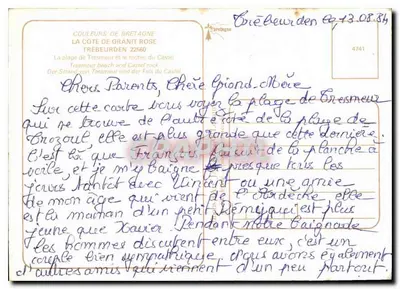 COULEURS DE BRETAGNE
LA COTE DE GRANIT ROSE
TRÉBEURDEN 22560
La plage de Tresmeur et le rocher du Castel
Tresmeur beach and Castel rock
Der Strand von Tresmeur und der Fels du Castel
Trébeurden le 13.08.84
4241
Chers Parents, Chère Grand-Mère
Sur cette carte vous voyez la plage de Tresmeur
qui se trouve de l'autre côté de la plage de
Trozoul elle est plus grande que cette dernière.
C'est là que François faisait de la planche à
voile, et je m'y baigne presque tous les
jours tantôt avec Vincent ou une amie
de mon âge qui vient de l'Ardèche elle
est la maman d'un petit Rémy qui est plus
jeune que Xavier. Pendant notre baignade
les hommes discutent entre eux, c'est un
couple bien sympathique, nous avons également
d'autres amis qui viennent d'un peu partout.